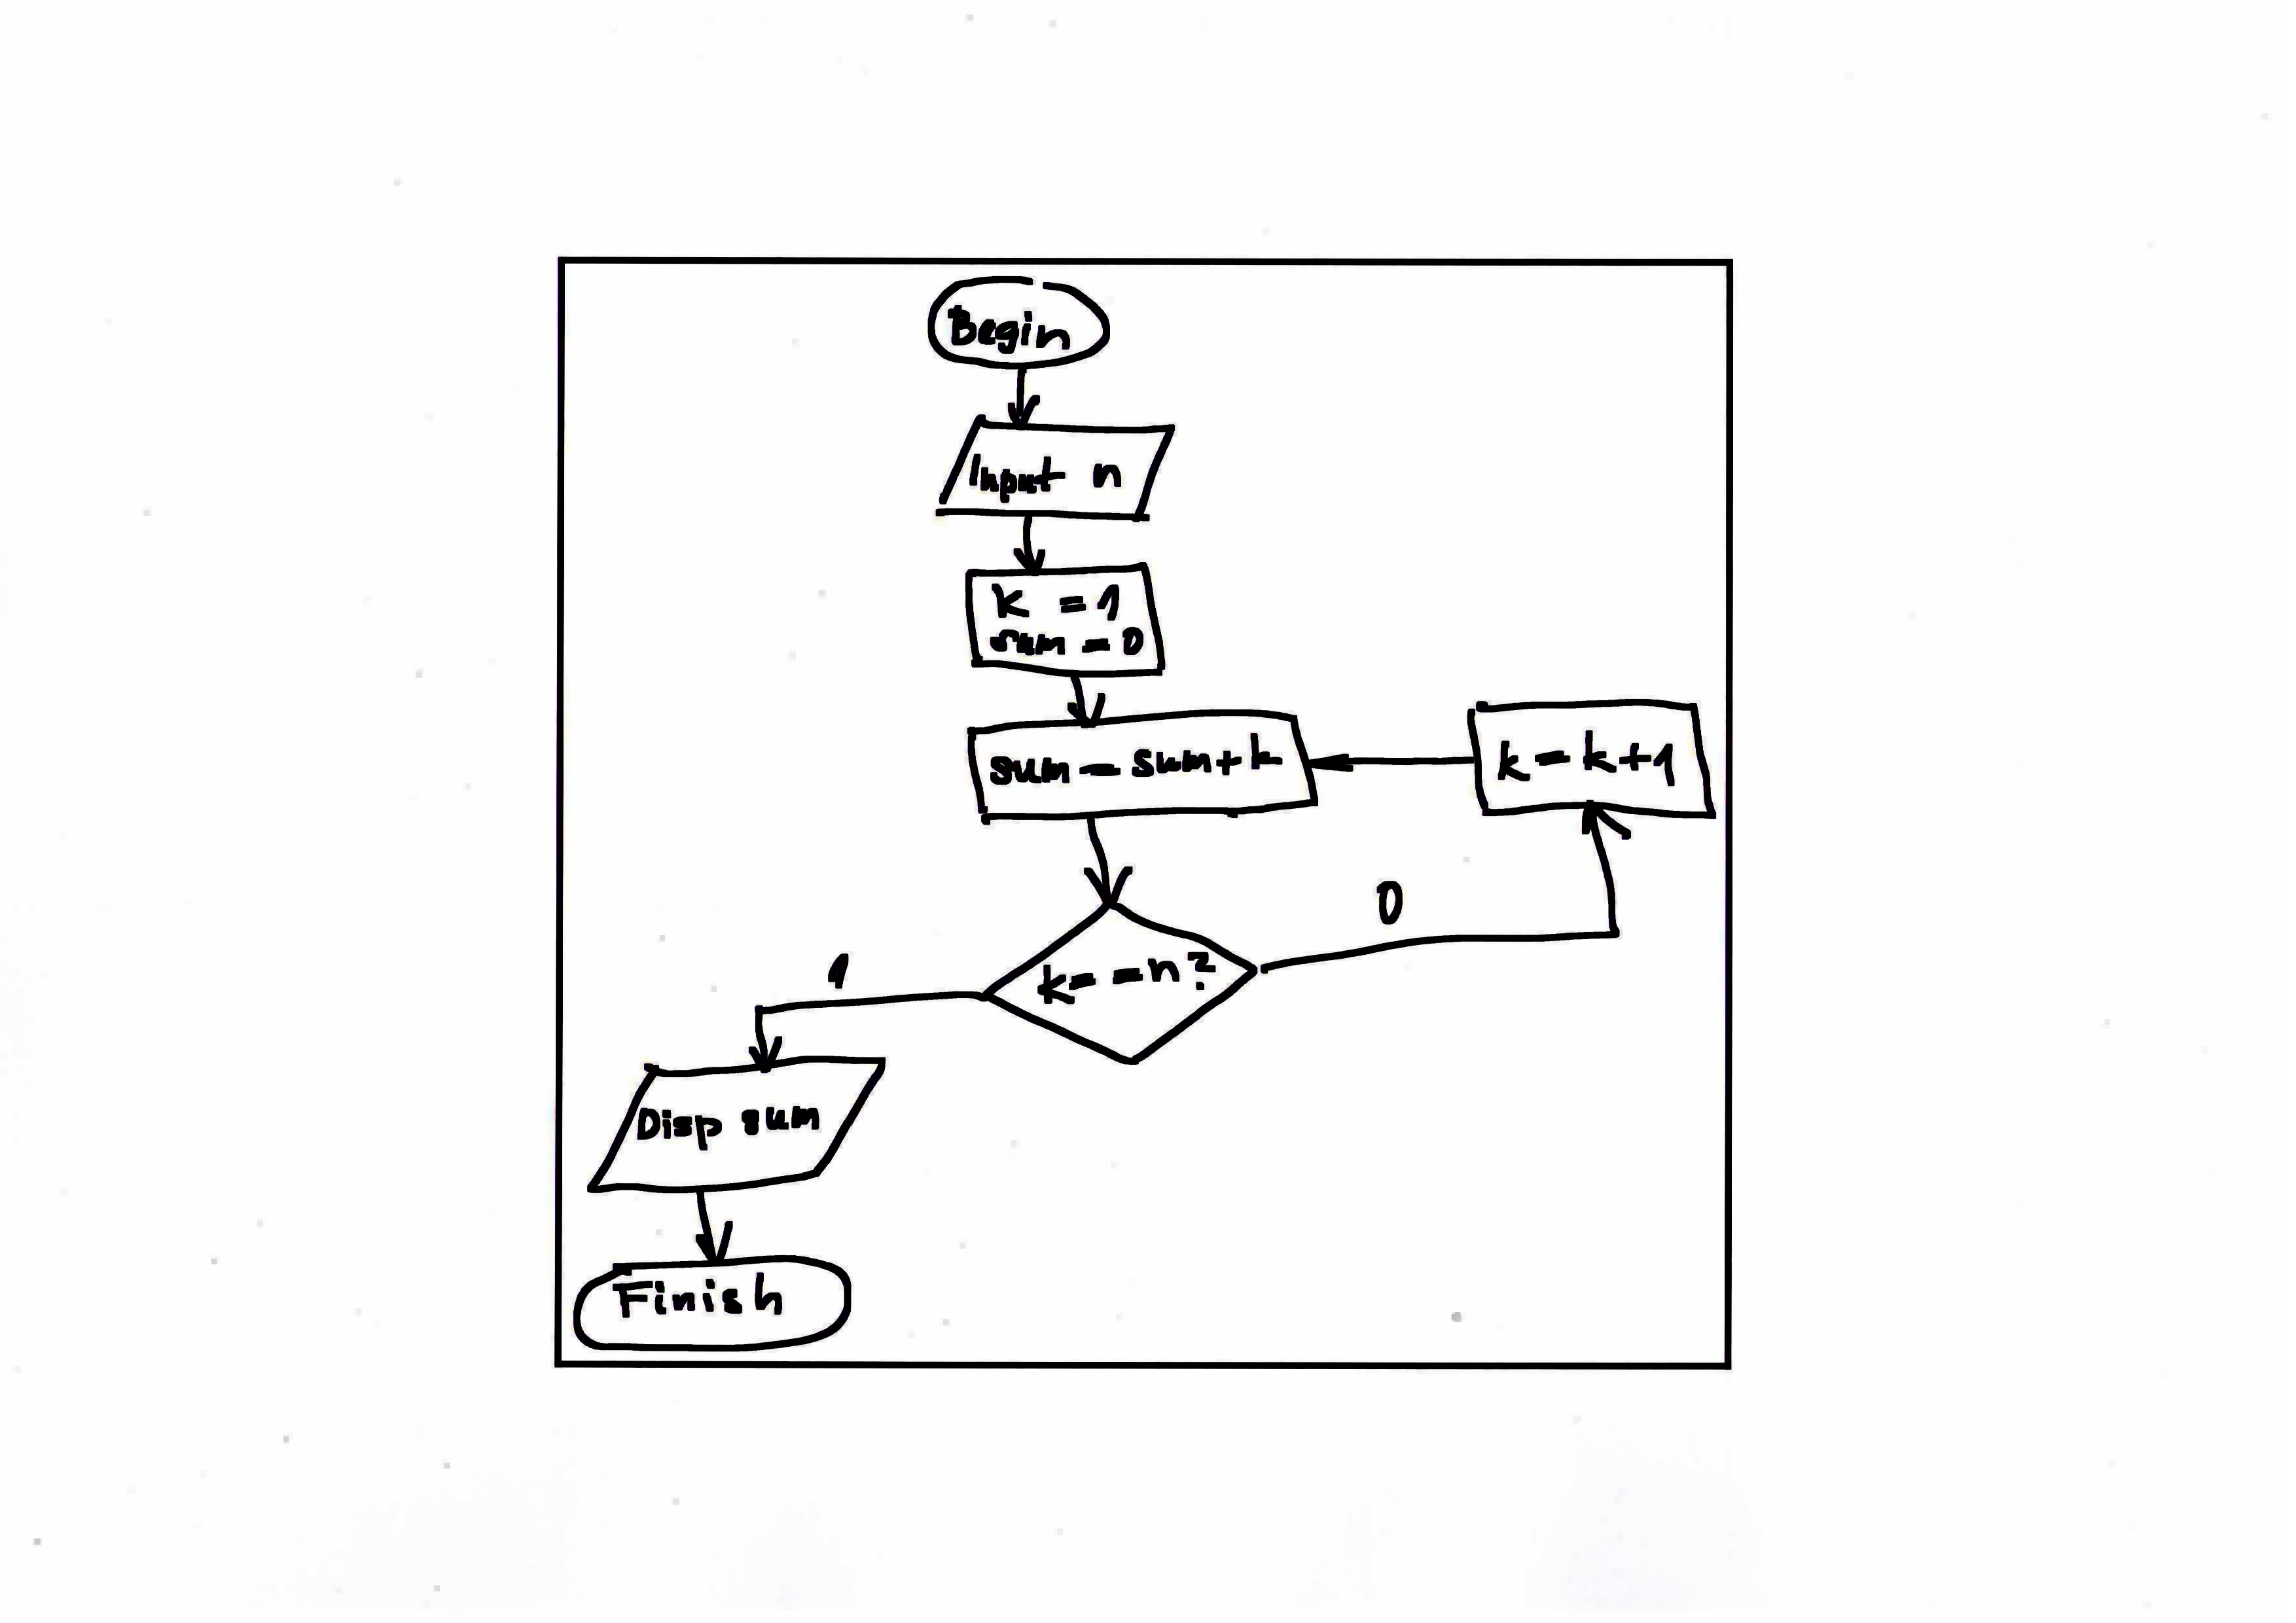 Begin
Input n
K = 1
sum = 0
sum = sum + k
k = k + 1
0
k = = n ?
1
Disp sum
Finish